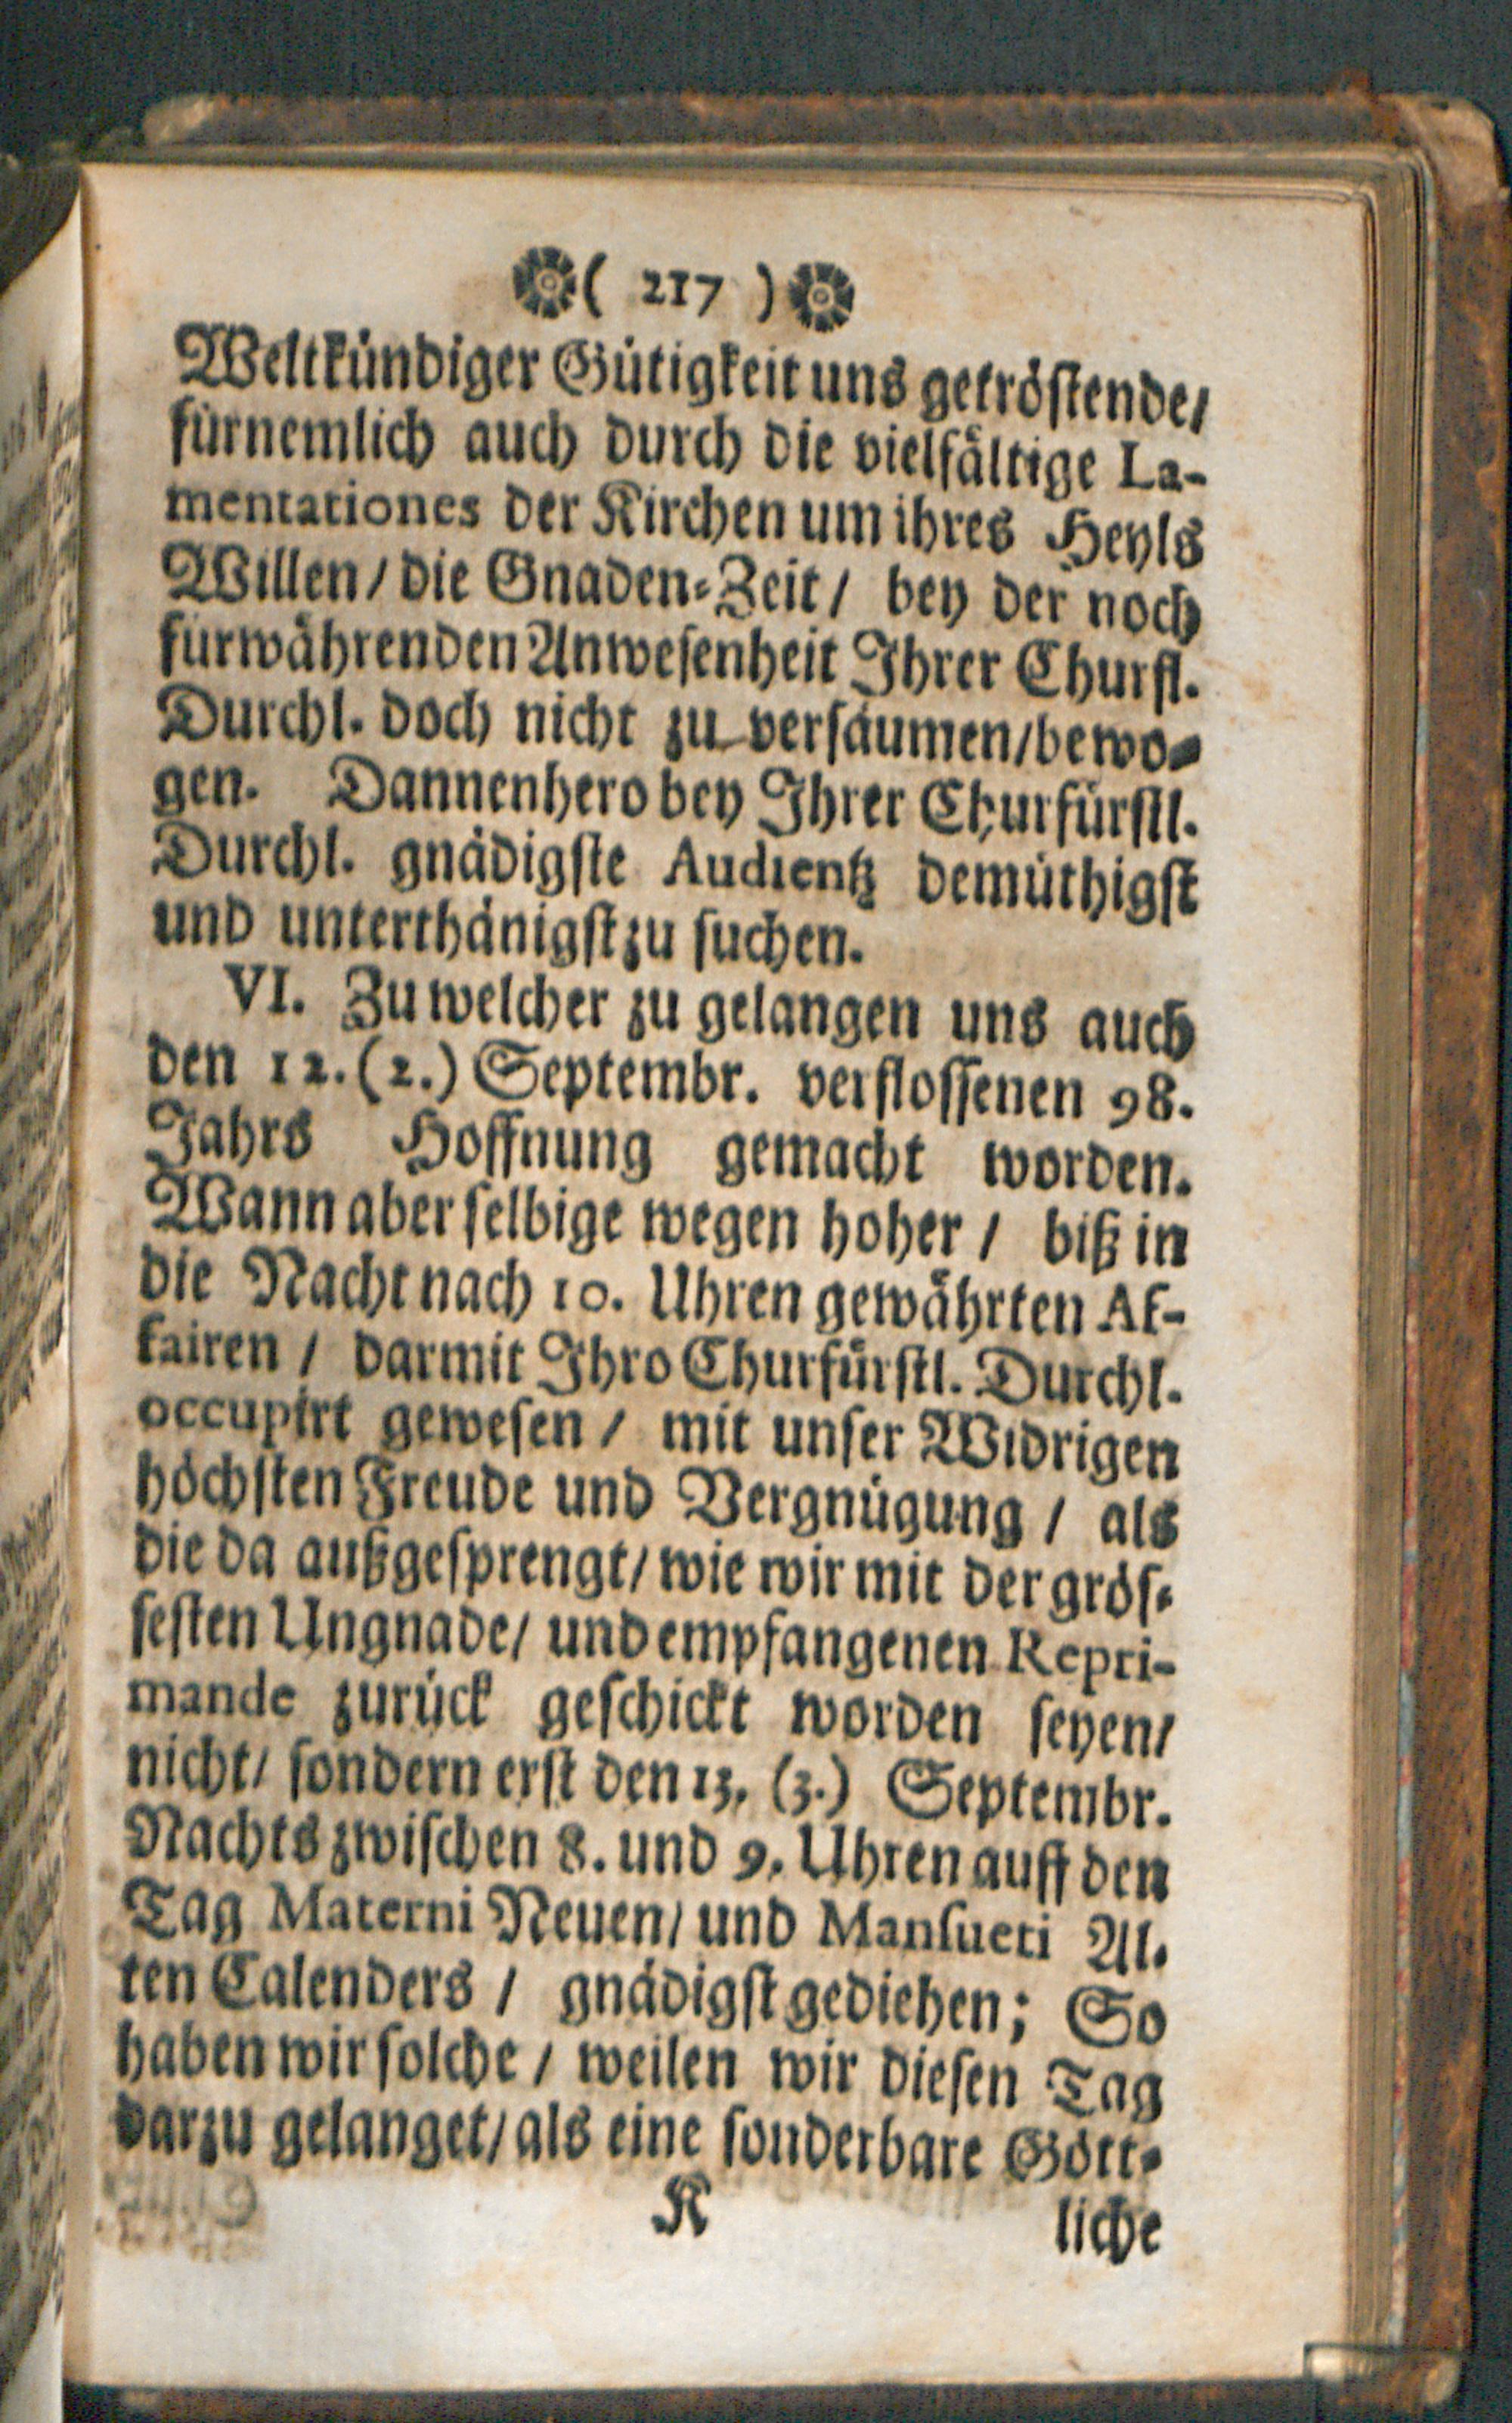 ( 217 )
Weltkündiger Gütigkeit uns getröstende/
fürnemlich auch durch die vielfältige La-
mentationes der Kirchen um ihres Heyls
Willen/ die Gnaden-Zeit/ bey der noch
fürwährenden Anwesenheit Ihrer Churfl.
Durchl. doch nicht zu versäumen/ bewo-
gen. Dannenhero bey Ihrer Churfürstl.
Durchl. gnädigste Audientz demüthigst
und unterthänigst zu suchen.
VI. Zu welcher zu gelangen uns auch
den 12. (2.) Septembr. verflossenen 98.
Jahrs Hoffnung gemacht worden.
Wann aber selbige wegen hoher / biß in
die Nacht nach 10. Uhren gewährten Af-
fairen / darmit Ihro Churfürstl. Durchl.
occupirt gewesen / mit unser Widrigen
höchsten Freude und Vergnügung / als
die da außgesprengt/ wie wir mit der grös-
sesten Ungnade/ und empfangenen Repri-
mande zurück geschickt worden seyen/
nicht/ sondern erst den 13. (3.) Septembr.
Nachts zwischen 8. und 9. Uhren auff den
Tag Materni Neuen/ und Mansueti Al-
ten Calenders / gnädigst gediehen; So
haben wir solche / weilen wir diesen Tag
darzu gelanget/ als eine sonderbare Gött-
K
liche